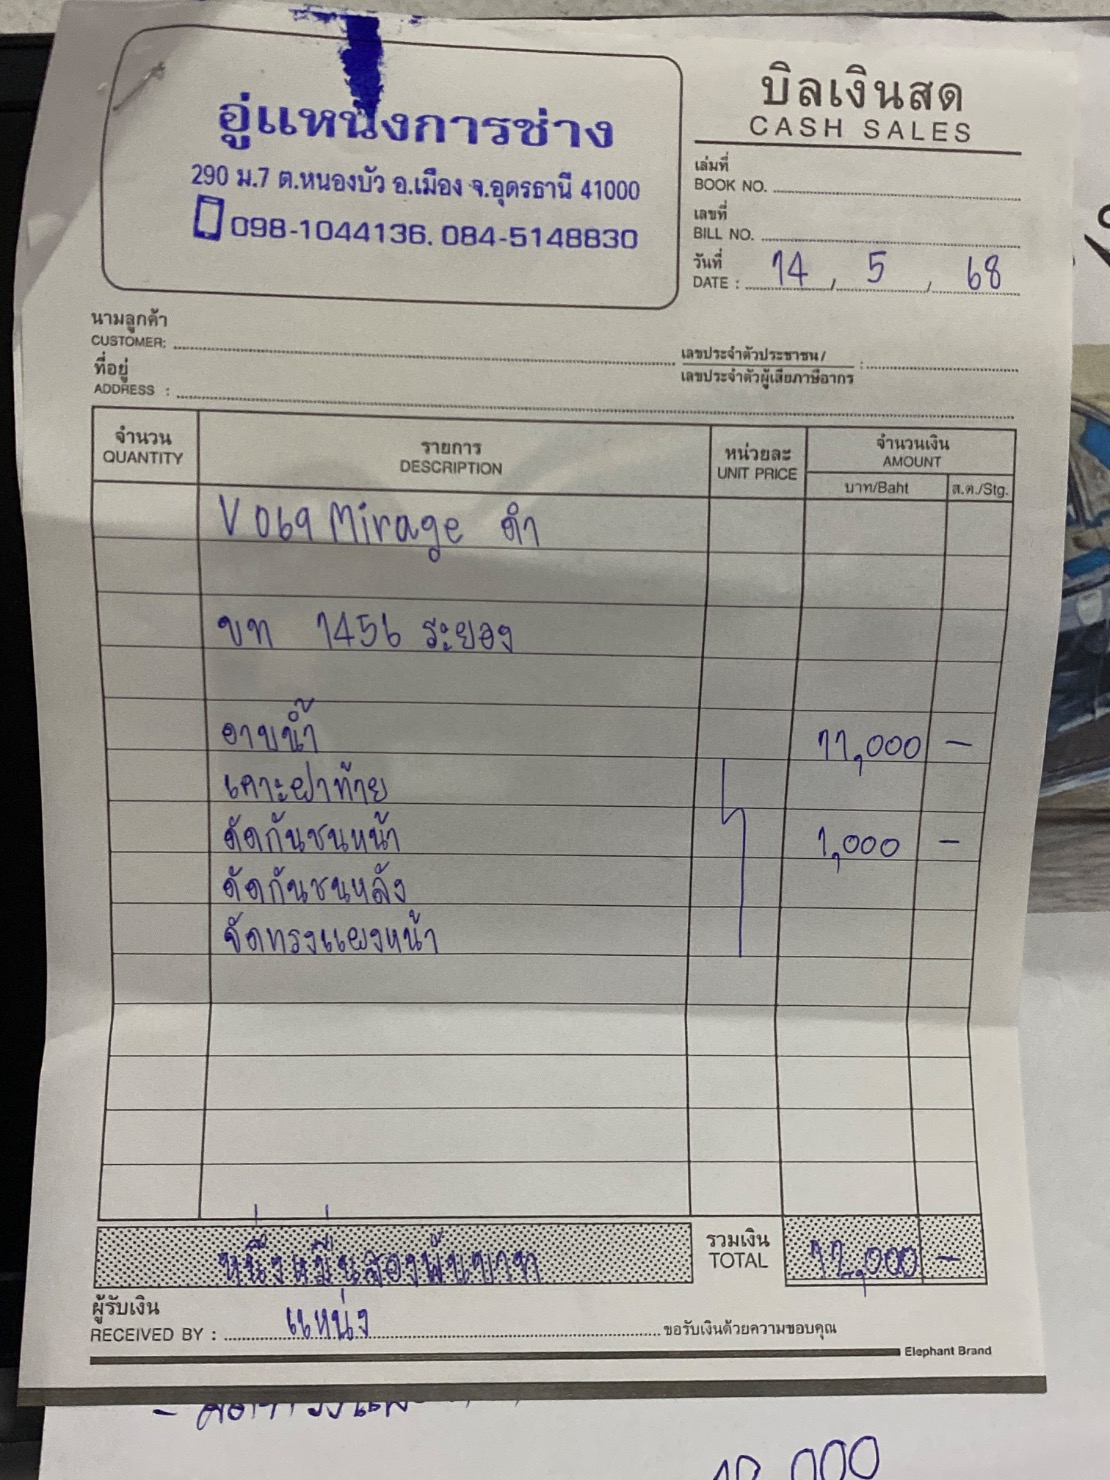 อู่แหน่งการช่าง
290 ม.7 ต.หนองบัว อ.เมือง จ.อุดรธานี 41000
098-1044136, 084-5148830
บิลเงินสด
CASH SALES
เล่มที่
BOOK NO.
เลขที่
BILL NO.
วันที่
DATE : 14 , 5 , 68
นามลูกค้า
CUSTOMER:
เลขประจำตัวประชาชน/
เลขประจำตัวผู้เสียภาษีอากร :
ที่อยู่
ADDRESS :
จำนวน รายการ หน่วยละ จำนวนเงิน
QUANTITY DESCRIPTION UNIT PRICE AMOUNT
บาท/Baht ส.ต./Stg.
V069 Mirage ดำ
ขท 1456 ระยอง
อาบน้ำ 11,000 -
เคาะฝาท้าย
ดัดกันชนหน้า 1,000 -
ดัดกันชนหลัง
จัดทรงแผงหน้า
หนึ่งหมื่นสองพันบาท รวมเงิน 12,000 -
TOTAL
ผู้รับเงิน
RECEIVED BY : แหน่ง ขอรับเงินด้วยความขอบคุณ
Elephant Brand